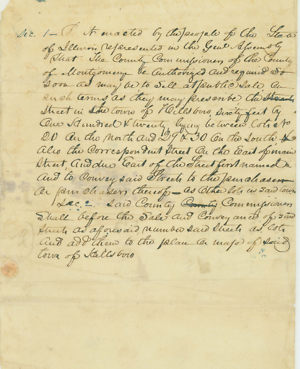 Sec. 1 - B. it enacted by the people of the State
of Illinois represented in the Genl Assembly
That the County Commissioners of the County
of Montgomery be Authorized and required so
soon as may be to sell at public Sale on
such terms as they may prescribe the
Street in the town of Hillsboro sixty feet by
One Hundred & twenty lying between lots No
20 On the North and 29 & 30 On the South
Also the Correspondent Street On the East of main
Street, And due East of the Street first named
And to Convey said Streets to the purchaser
or purchasers thereof - as other lots in said town
Sec. 2. Said County Commissioners
Shall before the Sale and Conveyance of
Streets as aforesaid number said Streets as lots
And add them to the plan or map of said
town of Hillsboro